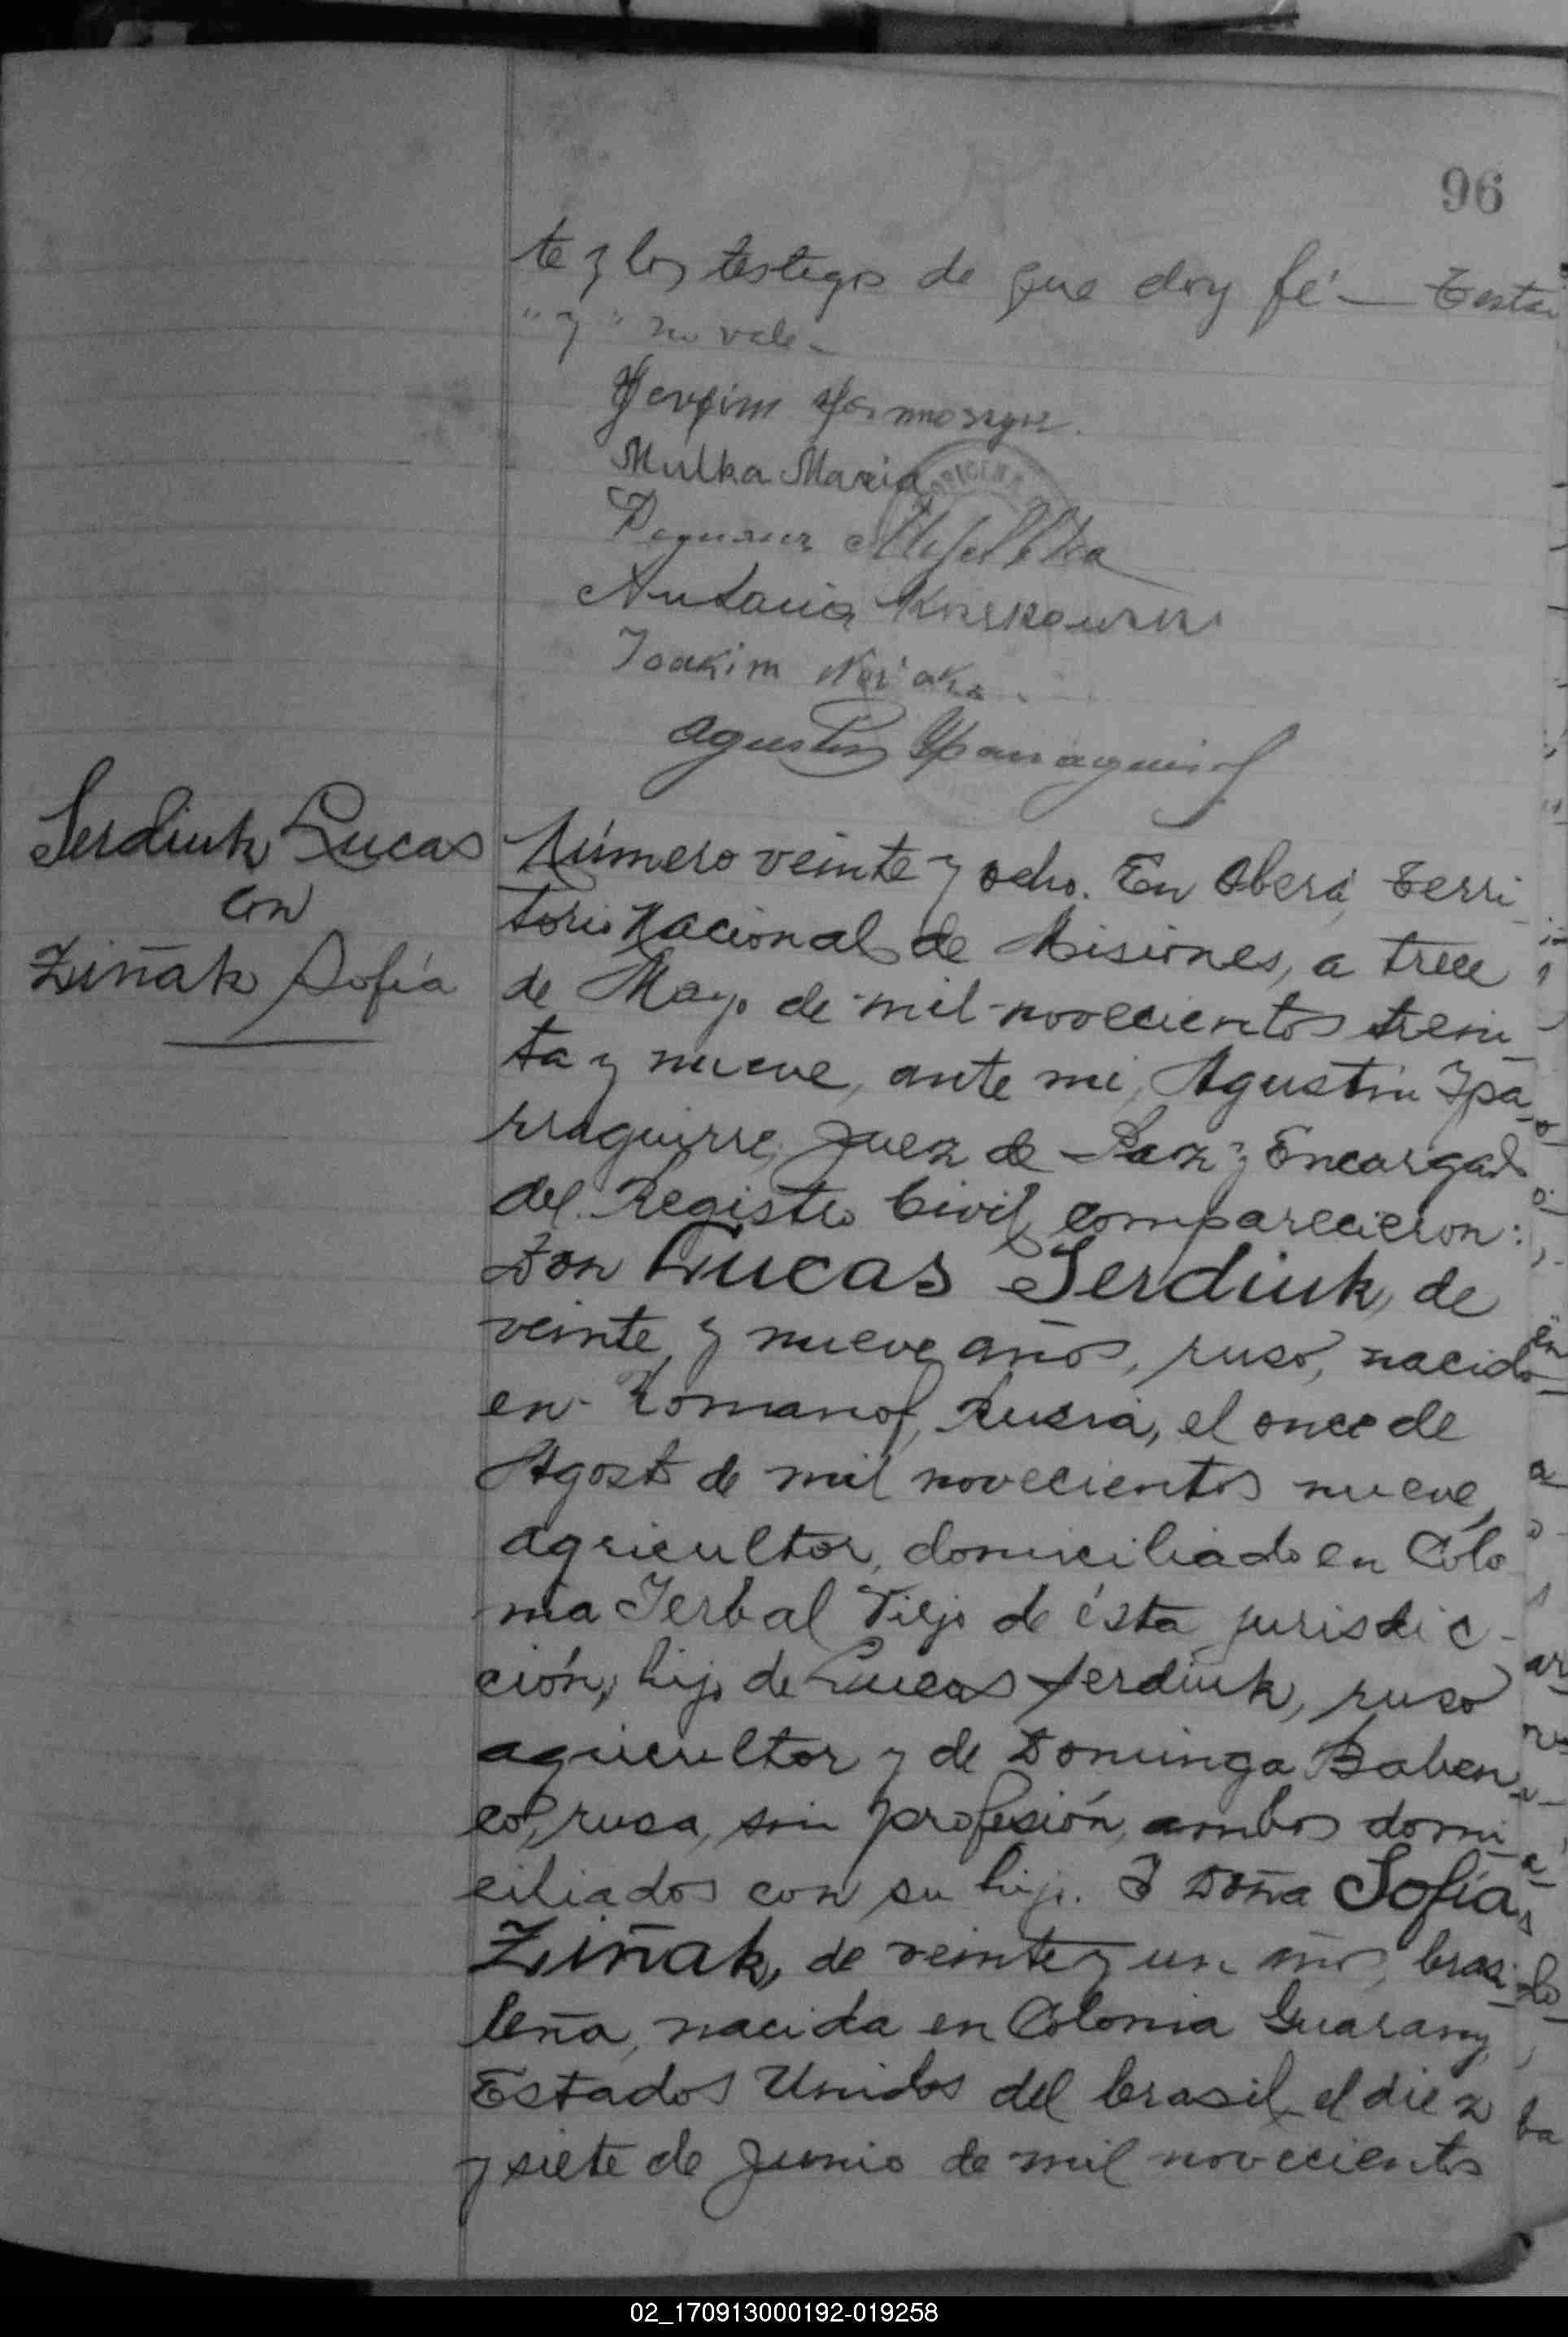 96
te y los testigos de que doy fé — Testa
"y" no vale -
Mulka Maria
Joakim
Serdiuk Lucas
con
Ziñak Sofía
Número veinte y ocho. En Oberá, Terri
torio Nacional de Misiones, a trece
de Mayo de mil novecientos trein
ta y nueve, ante mi, Agustín Ypa
rraguirre, Juez de Paz y Encargado
del Registro Civil, comparecieron:
Don Lucas Serdiuk, de
veinte y nueve años, ruso, nacido
en Romanof, Rusia, el once de
Agosto de mil novecientos nueve,
agricultor, domiciliado en Colo
nia Yerbal Viejo de ésta jurisdic-
ción, hijo de Lucas Serdiuk, ruso
agricultor y de Dominga Baben
co, rusa, sin profesión, ambos domi
ciliados con su hijo. Y Doña Sofía
Ziñak, de veinte y un años, brasi
leña, nacida en Colonia Guarany,
Estados Unidos del brasil, el diez
y siete de Junio de mil novecientos
02_170913000192-019258